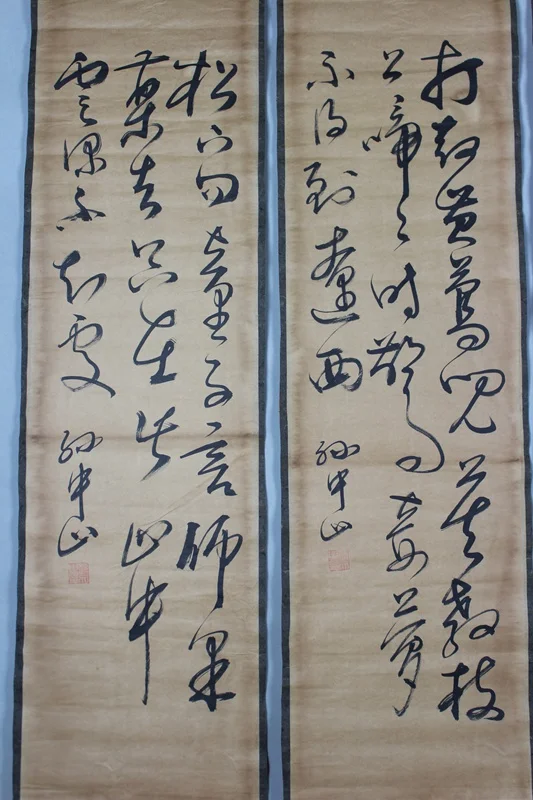 打起黃鶯兒莫教枝
上啼々時驚妾夢
不得到遼西
孫中山
松下問童子言師采
藥去只在此山中
雲深不知處
孫中山